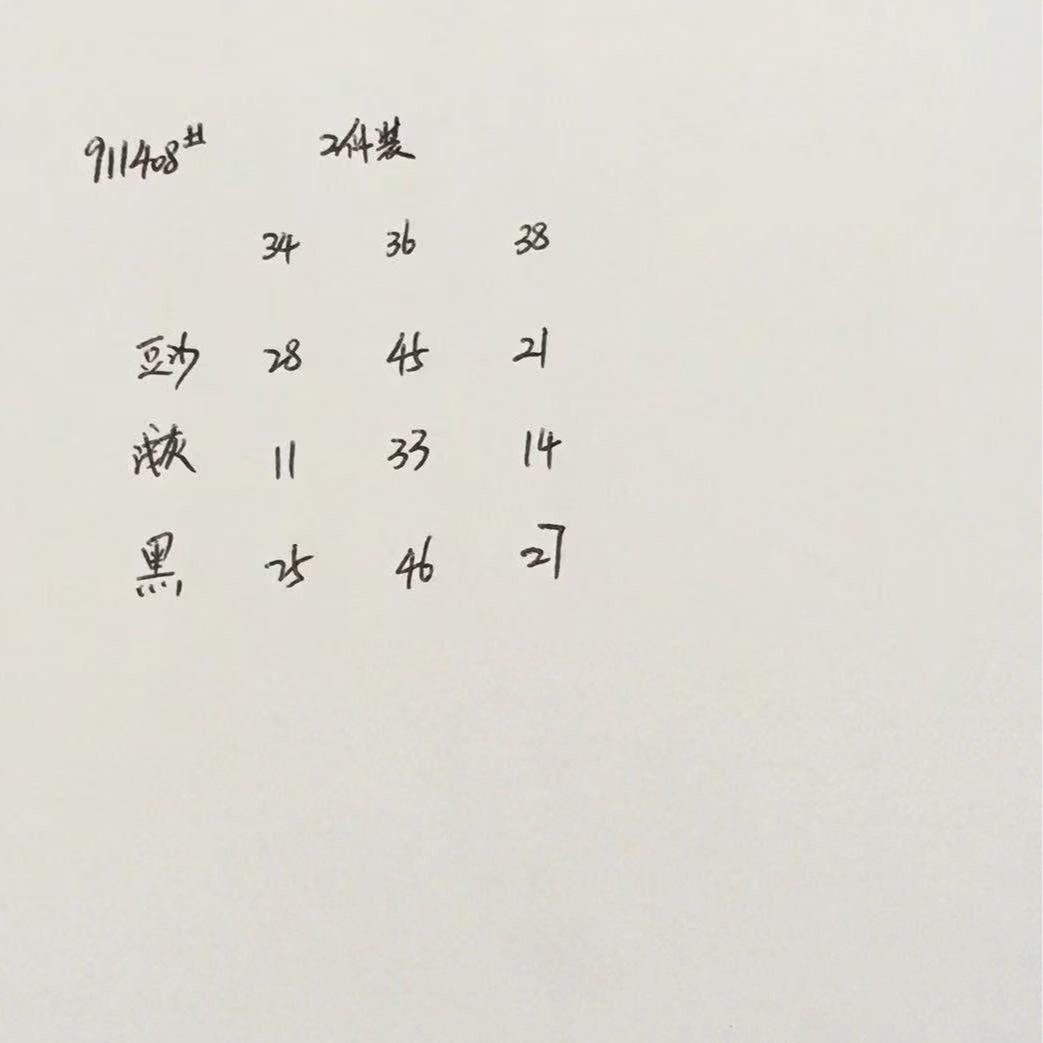 911408# 2件装
34 36 38
豆沙 28 45 21
浅灰 11 33 14
黑 25 46 27